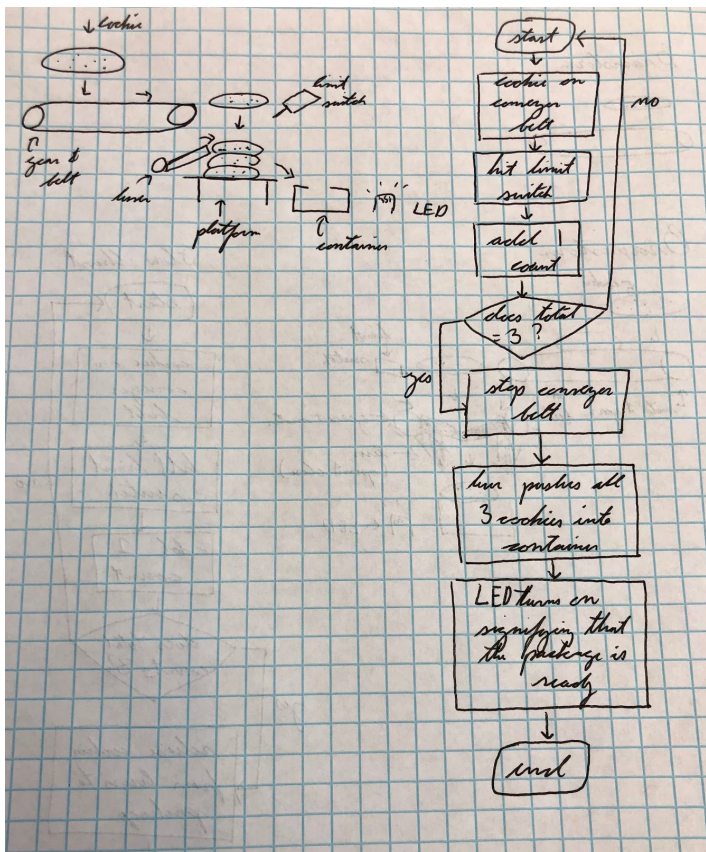 cookie
limit
switch
gear &
belt
lever
platform
container
LED
start
cookie on
conveyer
belt
no
hit limit
switch
add 1
count
does total
= 3 ?
yes
stop conveyer
belt
lever pushes all
3 cookies into
container
LED turns on
signifying that
the package is
ready
end